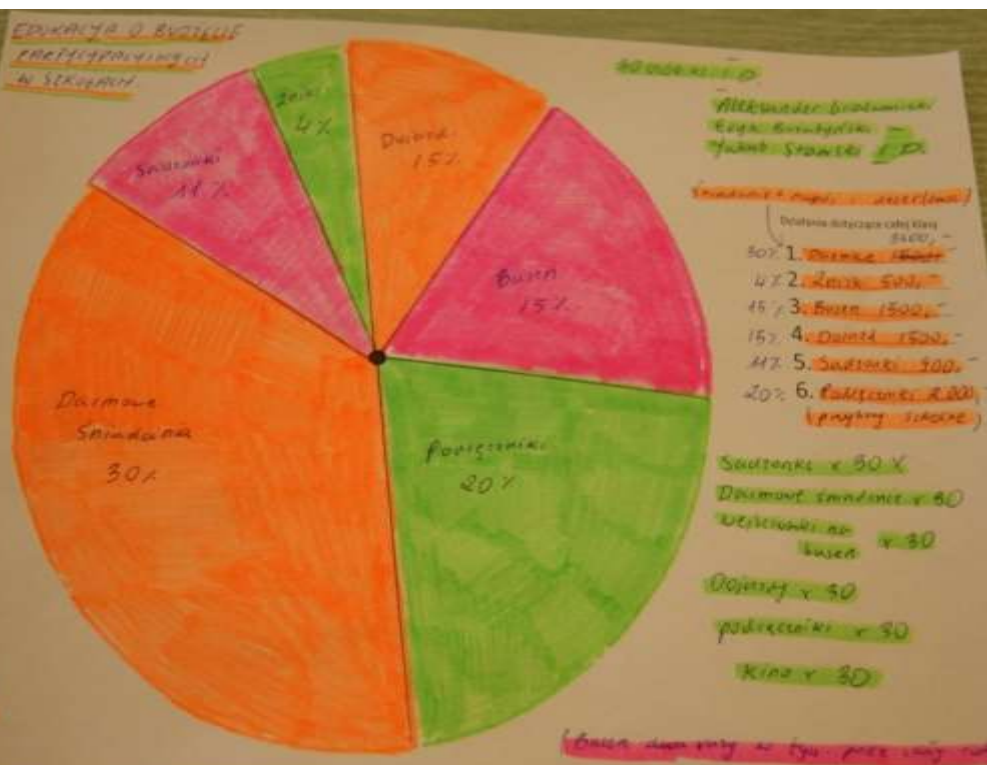 EDUKACJA O BUDŻECIE
PARTYCYPACYJNYM
W SZKOŁACH
Zniż.
4%
Dojazd
15%
Sadzonki
11%
Basen
15%
Darmowe
Śniadania
30%
Podręczniki
20%
Aleksander
Eryk
Jakub I D
Śniadanie +
Działania dotyczące całej klasy
30% 1. Darmowe
4% 2. 500,-
15% 3. Basen 1500,-
15% 4. Dojazd 1500,-
11% 5. Sadzonki 900,-
20% 6. Podręczniki 2 000,
(przybory szkolne)
Sadzonki x 30 X
Darmowe śniadanie x 30
wejściówki na
basen x 30
Dojazdy x 30
podręczniki x 30
Kino x 30
(Basen dwa razy w tyg. przez cały